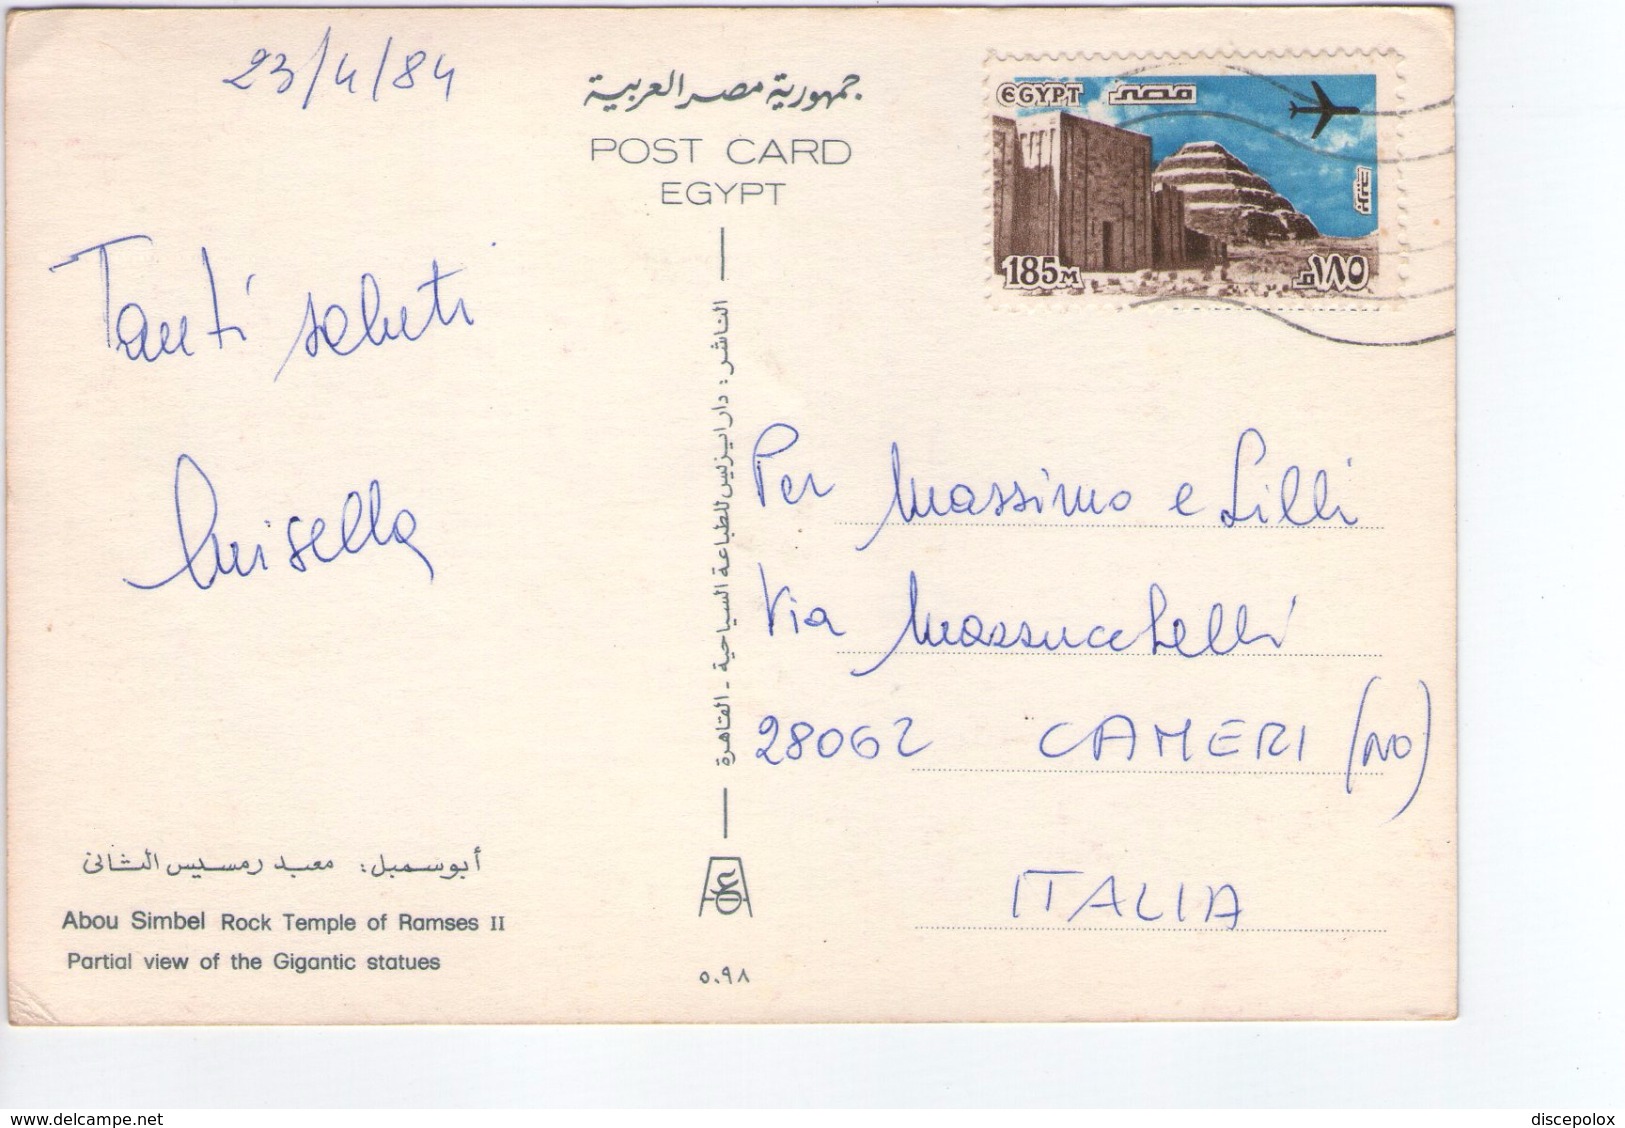 23/4/84
جمهورية مصر العربية
POST CARD
EGYPT
EGYPT مصر
185M
١٨٥
Tanti saluti
Luisella
الناشر: دار ايزيس للطباعة السياحية - القاهرة
Per Massimo e Lilli
Via Massucchelli
28062 CAMERI (NO)
ITALIA
أبوسمبل: معبد رمسيس الثانى
Abou Simbel Rock Temple of Ramses II
Partial view of the Gigantic statues
٥٠٩٨
delcampe.net
discepolox